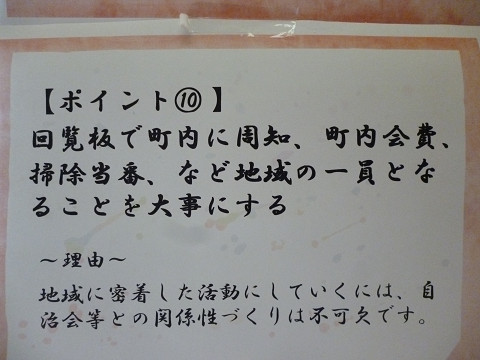 【ポイント⑩】
回覧板で町内に周知、町内会費、
掃除当番、など地域の一員とな
ることを大事にする
～理由～
地域に密着した活動にしていくには、自
治会等との関係性づくりは不可欠です。